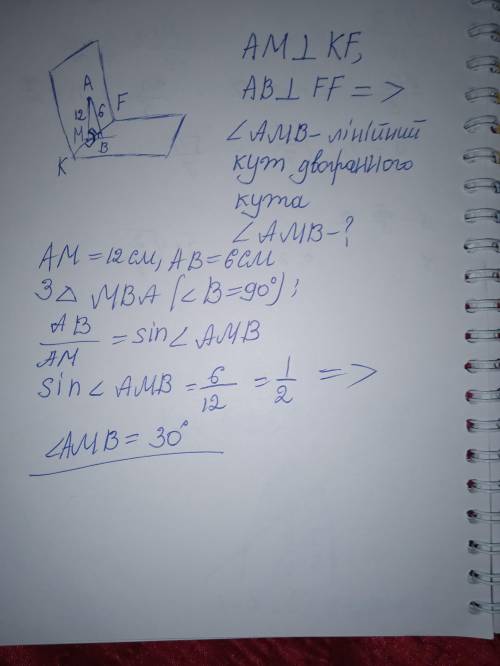 AM ⊥ KF,
AB ⊥ FF =>
∠AMB - лінійний
кут двогранного
кута
∠AMB - ?
A
12
6
F
M
B
K
AM = 12 см, AB = 6 см
З △ MBA (∠B = 90°):
AB
AM
= sin∠AMB
sin∠ AMB = 6/12 = 1/2 =>
∠AMB = 30°